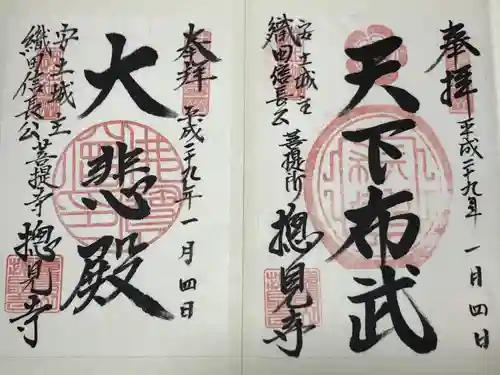 奉拝
平成二十九年一月四日
天下布武
安土城主
織田信長公
菩提所
摠見寺
奉拝
平成二十九年一月四日
大悲殿
安土城主
織田信長公
菩提寺
摠見寺